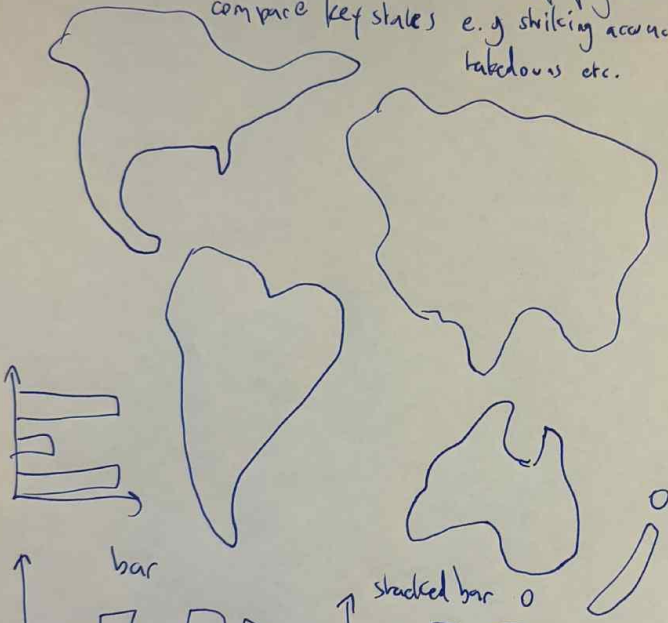 compare key states e.g striking accura
takedowns etc.
bar
stacked bar